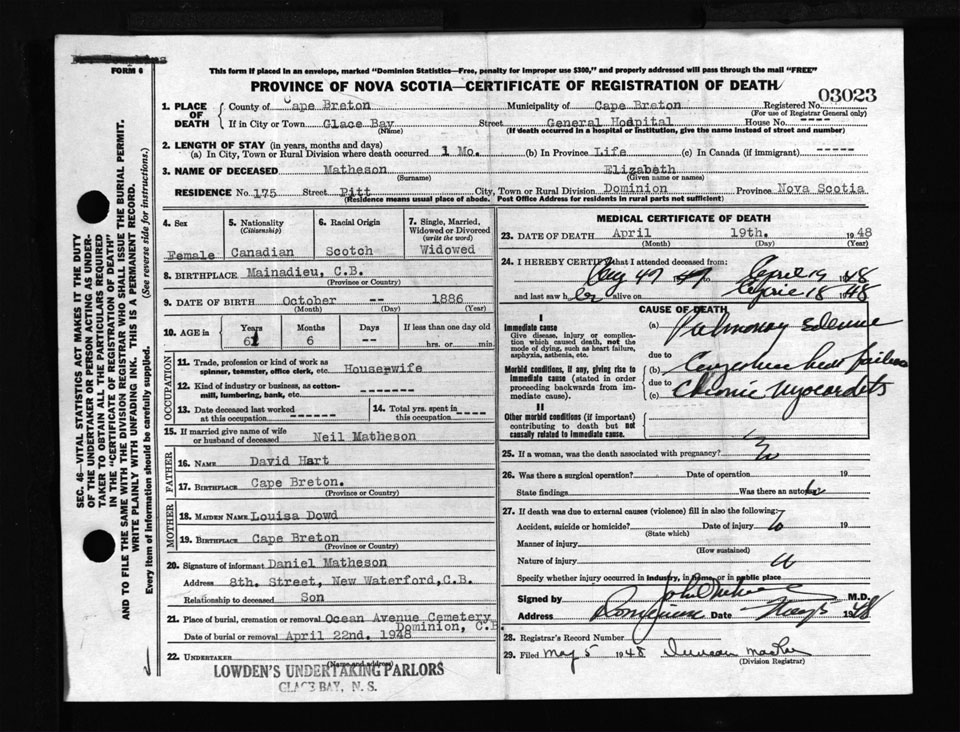 FORM 6
This form if placed in an envelope, marked "Dominion Statistics—Free, penalty for improper use $300," and properly addressed will pass through the mail "FREE"
PROVINCE OF NOVA SCOTIA—CERTIFICATE OF REGISTRATION OF DEATH
03023
1. PLACE OF DEATH
County of Cape Breton Municipality of Cape Breton Registered No.
(For use of Registrar General only)
If in City or Town Glace Bay Street General Hospital House No. ----
(Name) (If death occurred in a hospital or institution, give the name instead of street and number)
2. LENGTH OF STAY (in years, months and days)
(a) In City, Town or Rural Division where death occurred 1 Mo. (b) In Province Life (c) In Canada (if immigrant) -----
3. NAME OF DECEASED Matheson Elizabeth
(Surname) (Given name or names)
RESIDENCE No. 175 Street Pitt City, Town or Rural Division Dominion Province Nova Scotia
(Residence means usual place of abode. Post Office Address for residents in rural parts not sufficient)
4. Sex Female
5. Nationality (Citizenship) Canadian
6. Racial Origin Scotch
7. Single, Married, Widowed or Divorced (write the word) Widowed
8. BIRTHPLACE Mainadieu, C.B.
(Province or Country)
9. DATE OF BIRTH October -- 1886
(Month) (Day) (Year)
10. AGE in Years Months Days If less than one day
61 6 -- hrs. or min.
OCCUPATION
11. Trade, profession or kind of work as spinner, teamster, office clerk, etc. Housewife
12. Kind of industry or business, as cotton-mill, lumbering, bank, etc. -----
13. Date deceased last worked at this occupation -----
14. Total yrs. spent in this occupation -----
15. If married give name of wife or husband of deceased Neil Matheson
FATHER
16. NAME David Hart
17. BIRTHPLACE Cape Breton.
(Province or Country)
MOTHER
18. MAIDEN NAME Louisa Dowd
19. BIRTHPLACE Cape Breton
(Province or Country)
20. Signature of informant Daniel Matheson
Address 8th. Street, New Waterford, C.B.
Relationship to deceased Son
21. Place of burial, cremation or removal Ocean Avenue Cemetery
Dominion, C.B.
Date of burial or removal April 22nd. 1948
22. UNDERTAKER
(Name and address)
LOWDEN'S UNDERTAKING PARLORS
GLACE BAY, N. S.
MEDICAL CERTIFICATE OF DEATH
23. DATE OF DEATH April 19th. 1948
(Month) (Day) (Year)
24. I HEREBY CERTIFY that I attended deceased from:
47 April 19 1948
and last saw her alive on April 18 1948
CAUSE OF DEATH
I
Immediate cause
Give disease, injury or complication which caused death, not the mode of dying, such as heart failure, asphyxia, asthenia, etc.
(a) Pulmonary Edema
due to
Morbid conditions, if any, giving rise to immediate cause (stated in order proceeding backwards from immediate cause).
(b) Congestive heart failure
due to
(c) Chronic Myocarditis
II
Other morbid conditions (if important) contributing to death but not causally related to immediate cause.
25. If a woman, was the death associated with pregnancy? No
26. Was there a surgical operation? Date of operation 19
State findings Was there an autopsy
27. If death was due to external causes (violence) fill in also the following:
Accident, suicide or homicide? Date of injury 19
(State which)
Manner of injury
(How sustained)
Nature of injury
Specify whether injury occurred in industry, in home, or in public place
Signed by John M.D.
Address Dominion Date May 5 1948
28. Registrar's Record Number
29. Filed May 5 1948 Duncan
(Division Registrar)
SEC. 46—VITAL STATISTICS ACT MAKES IT THE DUTY
OF THE UNDERTAKER OR PERSON ACTING AS UNDER-
TAKER TO OBTAIN ALL THE PARTICULARS REQUIRED
IN THE "CERTIFICATE OF REGISTRATION OF DEATH"
AND TO FILE THE SAME WITH THE DIVISION REGISTRAR WHO SHALL ISSUE THE BURIAL PERMIT.
WRITE PLAINLY WITH UNFADING INK. THIS IS A PERMANENT RECORD.
Every item of information should be carefully supplied. (See reverse side for instructions.)